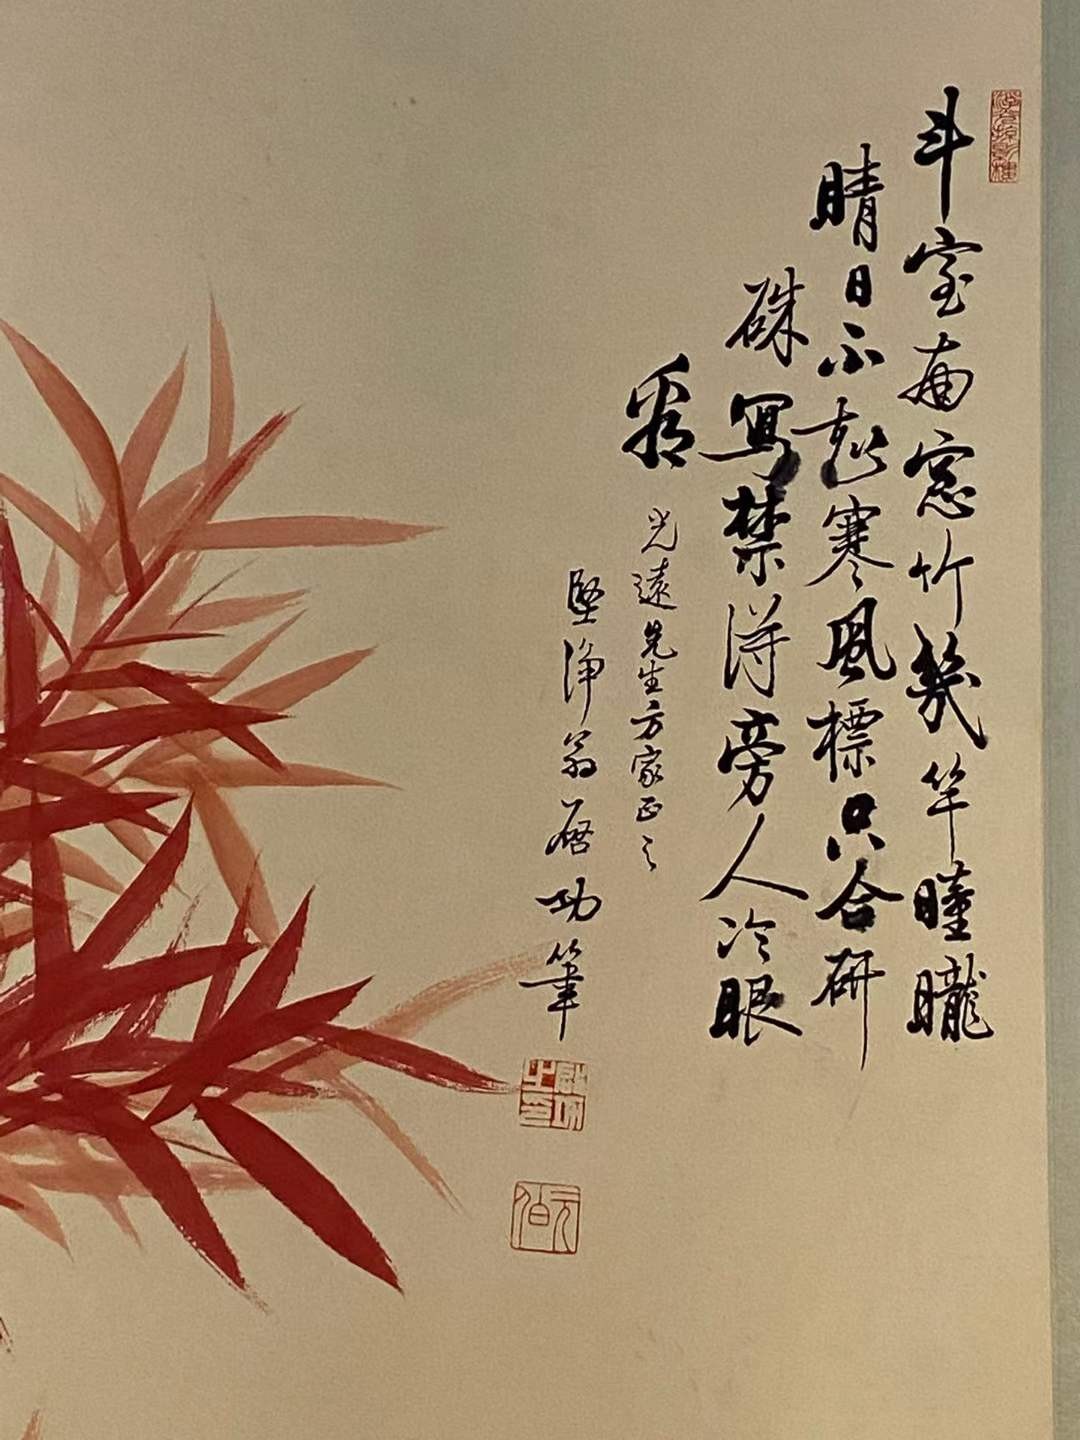 斗室南窓竹幾竿曈曨
晴日不趂寒風標只合研
硃寫禁得旁人冷眼
看
光遠先生方家正之
堅淨翁啟功筆
啟功之印
元伯